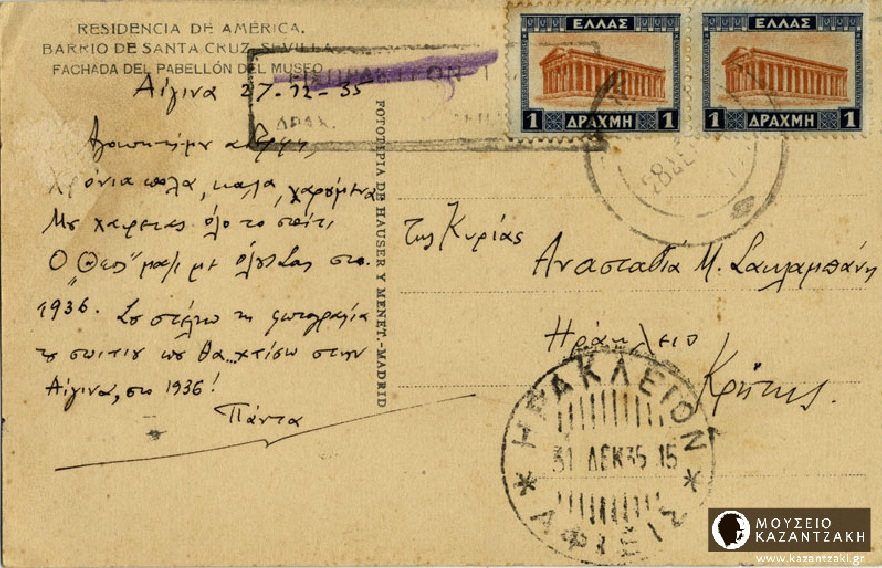 RESIDENCIA DE AMÉRICA.
BARRIO DE SANTA CRUZ, SEVILLA
FACHADA DEL PABELLÓN DEL MUSEO
Αίγινα 27-12-35
Χρόνια πολλα, καλα, χαρούμενα
Με χαιρετας όλο το σπίτι
Ο "Θεος" μαζι με όλους Σας στο
1936. Σου στέλνω τη φωτογραφία
του σπιτιου που θα χτίσω στην
Αίγινα, στο 1936!
Πάντα
FOTOTIPIA DE HAUSER Y MENET.-MADRID
ΕΛΛΑΣ
1 ΔΡΑΧΜΗ 1
ΕΛΛΑΣ
1 ΔΡΑΧΜΗ 1
Της Κυρίας
Αναστασία Μ. Σακλαμπάνη
Ηράκλειο
Κρήτης.
ΗΡΑΚΛΕΙΟΝ
31 ΔΕΚ 35 15
ΜΟΥΣΕΙΟ
ΚΑΖΑΝΤΖΑΚΗ
www.kazantzaki.gr